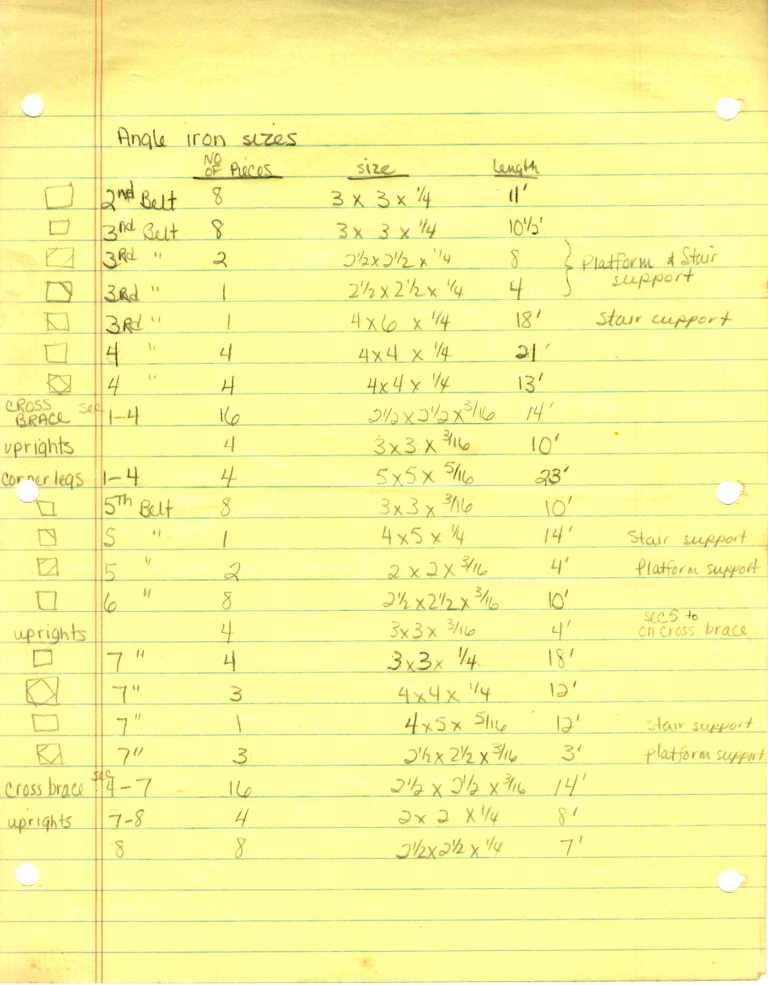 Angle iron sizes
NO OF Pieces size length
2nd Belt 8 3 x 3 x 1/4 11'
3nd Belt 8 3 x 3 x 1/4 10 1/2'
3Rd " 2 2 1/2 x 2 1/2 x 1/4 8 } Platform & Stair support
3Rd " 1 2 1/2 x 2 1/2 x 1/4 4
3Rd " 1 4 x 6 x 1/4 18' Stair support
4 " 4 4 x 4 x 1/4 21'
4 " 4 4 x 4 x 1/4 13'
CROSS BRACE sec 1-4 16 2 1/2 x 2 1/2 x 3/16 14'
uprights 4 3 x 3 x 3/16 10'
corner legs 1-4 4 5 x 5 x 5/16 23'
5th Belt 8 3 x 3 x 3/16 10'
5 " 1 4 x 5 x 1/4 14' Stair support
5 " 2 2 x 2 x 3/16 4' Platform support
6 " 8 2 1/2 x 2 1/2 x 3/16 10'
uprights 4 3 x 3 x 3/16 4' sec 5 to on cross brace
7 " 4 3 x 3 x 1/4 18'
7 " 3 4 x 4 x 1/4 12'
7 " 1 4 x 5 x 5/16 12' Stair support
7 " 3 2 1/2 x 2 1/2 x 3/16 3' Platform support
cross brace sec 4-7 16 2 1/2 x 2 1/2 x 3/16 14'
uprights 7-8 4 2 x 2 x 1/4 8'
8 8 2 1/2 x 2 1/2 x 1/4 7'